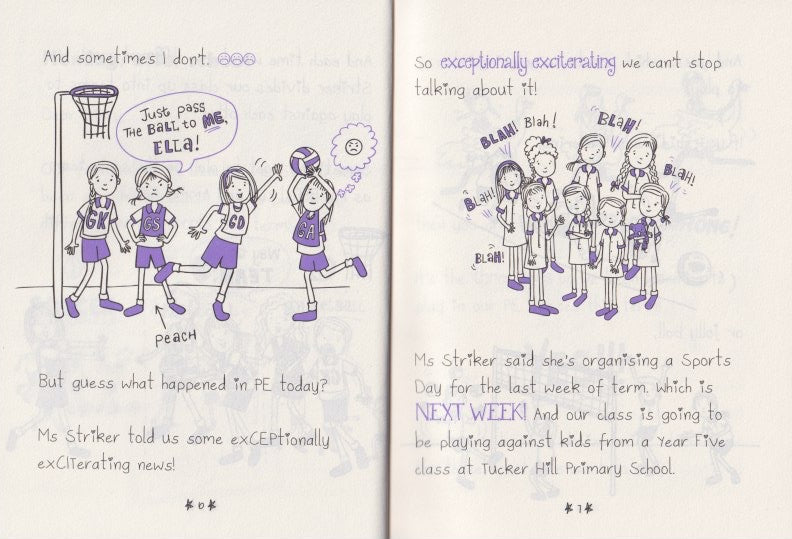 And sometimes I don't.
Just pass
THE BALL to ME,
ELLa!
GK
GS
GD
GA
PEACH
But guess what happened in PE today?
Ms Striker told us some exCEPtionally
exCITerating news!
6
So exceptionally exciterating we can't stop
talking about it!
BLAH! Blah!
BLaH!
BLaH!
BLaH!
BLaH!
Ms Striker said she's organising a Sports
Day for the last week of term. Which is
NEXT WEEK! And our class is going to
be playing against kids from a Year Five
class at Tucker Hill Primary School.
7